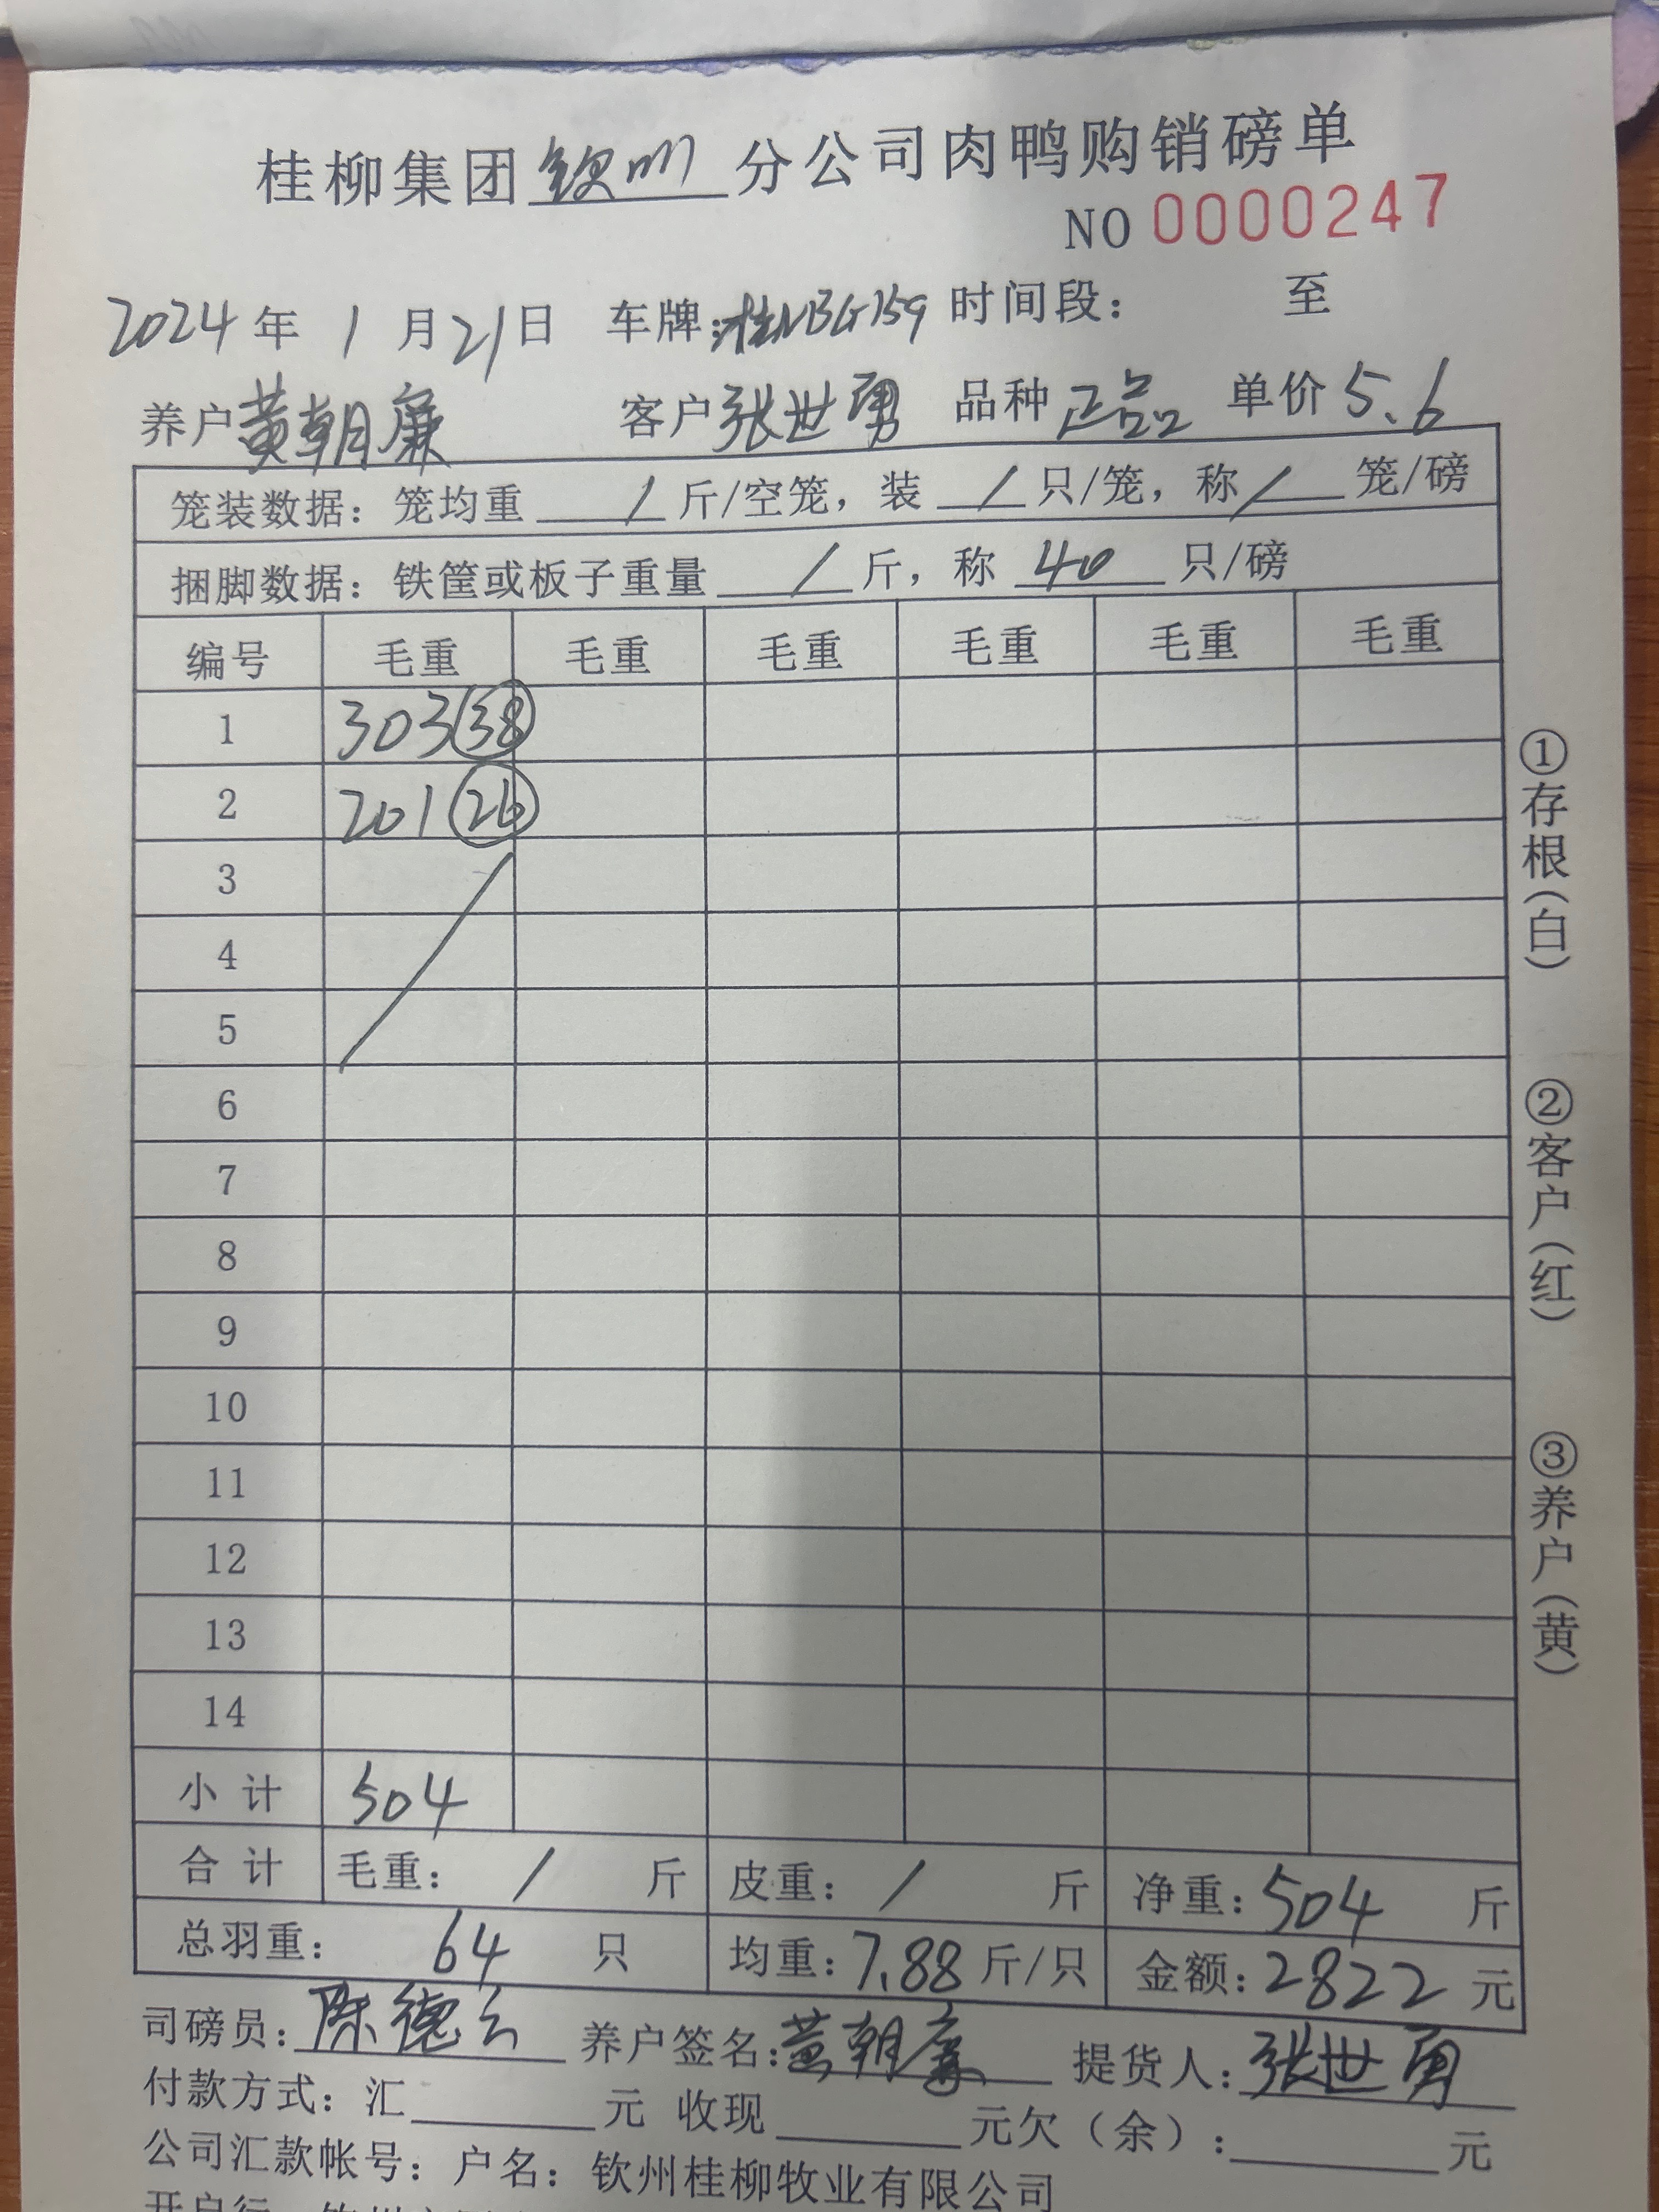 桂柳集团钦州分公司肉鸭购销磅单
NO 0000247
2024年 1 月21日 车牌:桂NBG159 时间段: 至
养户黄朝廉 客户张世勇 品种正品 单价5.6
笼装数据: 笼均重 / 斤/空笼, 装 / 只/笼, 称 / 笼/磅
捆脚数据: 铁筐或板子重量 / 斤, 称 40 只/磅
编号 毛重 毛重 毛重 毛重 毛重 毛重
1 303 38
2 201 26
3
4
5
6
7
8
9
10
11
12
13
14
小计 504
合计 毛重: / 斤 皮重: / 斤 净重: 504 斤
总羽重: 64 只 均重: 7.88 斤/只 金额: 2822 元
司磅员: 陈德云 养户签名: 黄朝廉 提货人: 张世勇
付款方式: 汇 元 收现 元欠(余): 元
公司汇款帐号: 户名: 钦州桂柳牧业有限公司
①存根(白)
②客户(红)
③养户(黄)